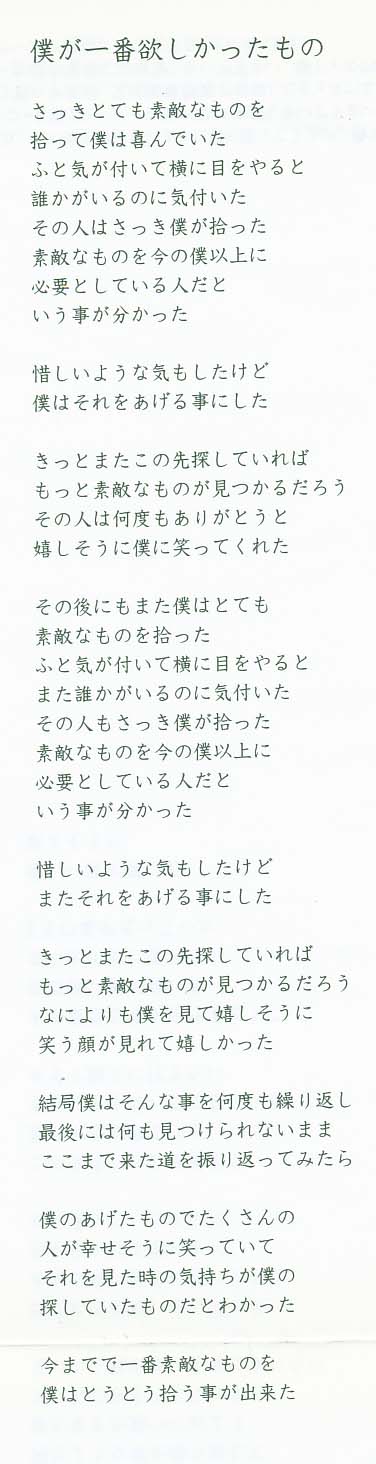 僕が一番欲しかったもの
さっきとても素敵なものを
拾って僕は喜んでいた
ふと気が付いて横に目をやると
誰かがいるのに気付いた
その人はさっき僕が拾った
素敵なものを今の僕以上に
必要としている人だと
いう事が分かった
惜しいような気もしたけど
僕はそれをあげる事にした
きっとまたこの先探していれば
もっと素敵なものが見つかるだろう
その人は何度もありがとうと
嬉しそうに僕に笑ってくれた
その後にもまた僕はとても
素敵なものを拾った
ふと気が付いて横に目をやると
また誰かがいるのに気付いた
その人もさっき僕が拾った
素敵なものを今の僕以上に
必要としている人だと
いう事が分かった
惜しいような気もしたけど
またそれをあげる事にした
きっとまたこの先探していれば
もっと素敵なものが見つかるだろう
なによりも僕を見て嬉しそうに
笑う顔が見れて嬉しかった
結局僕はそんな事を何度も繰り返し
最後には何も見つけられないまま
ここまで来た道を振り返ってみたら
僕のあげたものでたくさんの
人が幸せそうに笑っていて
それを見た時の気持ちが僕の
探していたものだとわかった
今までで一番素敵なものを
僕はとうとう拾う事が出来た